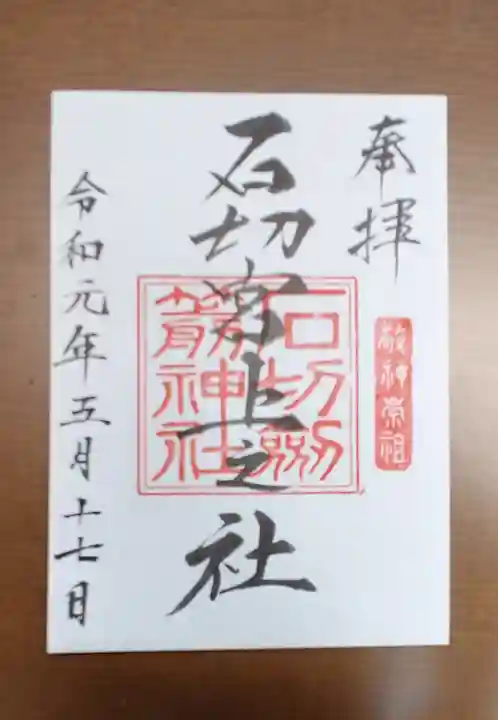 奉拝
敬神崇祖
石切宮上之社
石切劔
箭神社
令和元年五月十七日